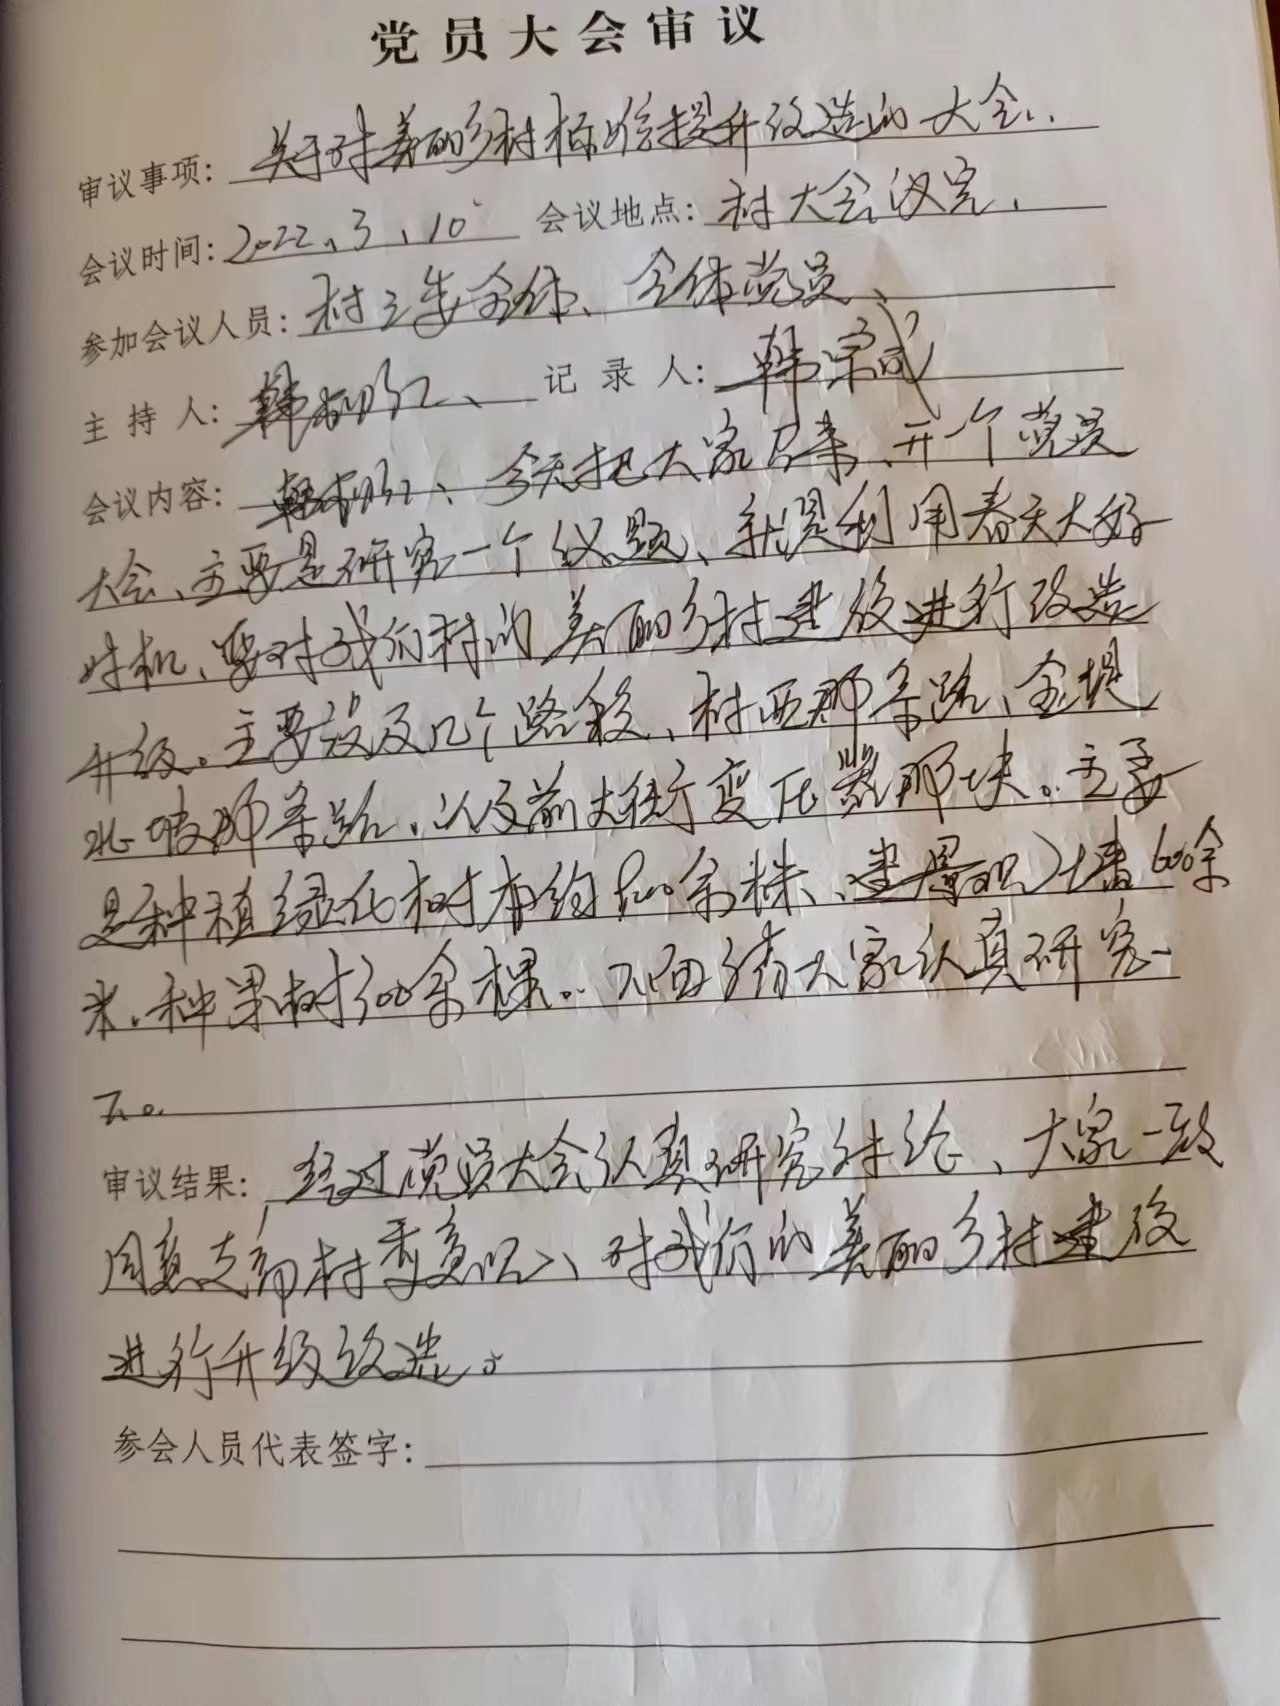 党员大会审议
审议事项：关于对美丽乡村标准提升改造的大会、
会议时间：2022、3、10 会议地点：村大会议室、
参加会议人员：村三委全体、全体党员、
主持人：韩 红、 记录人：韩宗武
会议内容：韩 红、今天把大家召来、开一个党员
大会、主要是研究一个议题、就是利用春天大好
时机、要对我们村的美丽乡村建设进行改造
升级。主要设及几个路段、村西那条路、金堤
北坡那条路、以及前大街变压器那块。主要
是种植绿化树木约800余株、建景观墙600余
米、种果树300余棵。下面请大家认真研究一
下。
审议结果：经过党员大会认真研究讨论、大家一致
同意支部村委意见、对我们的美丽乡村建设
进行升级改造。
参会人员代表签字：